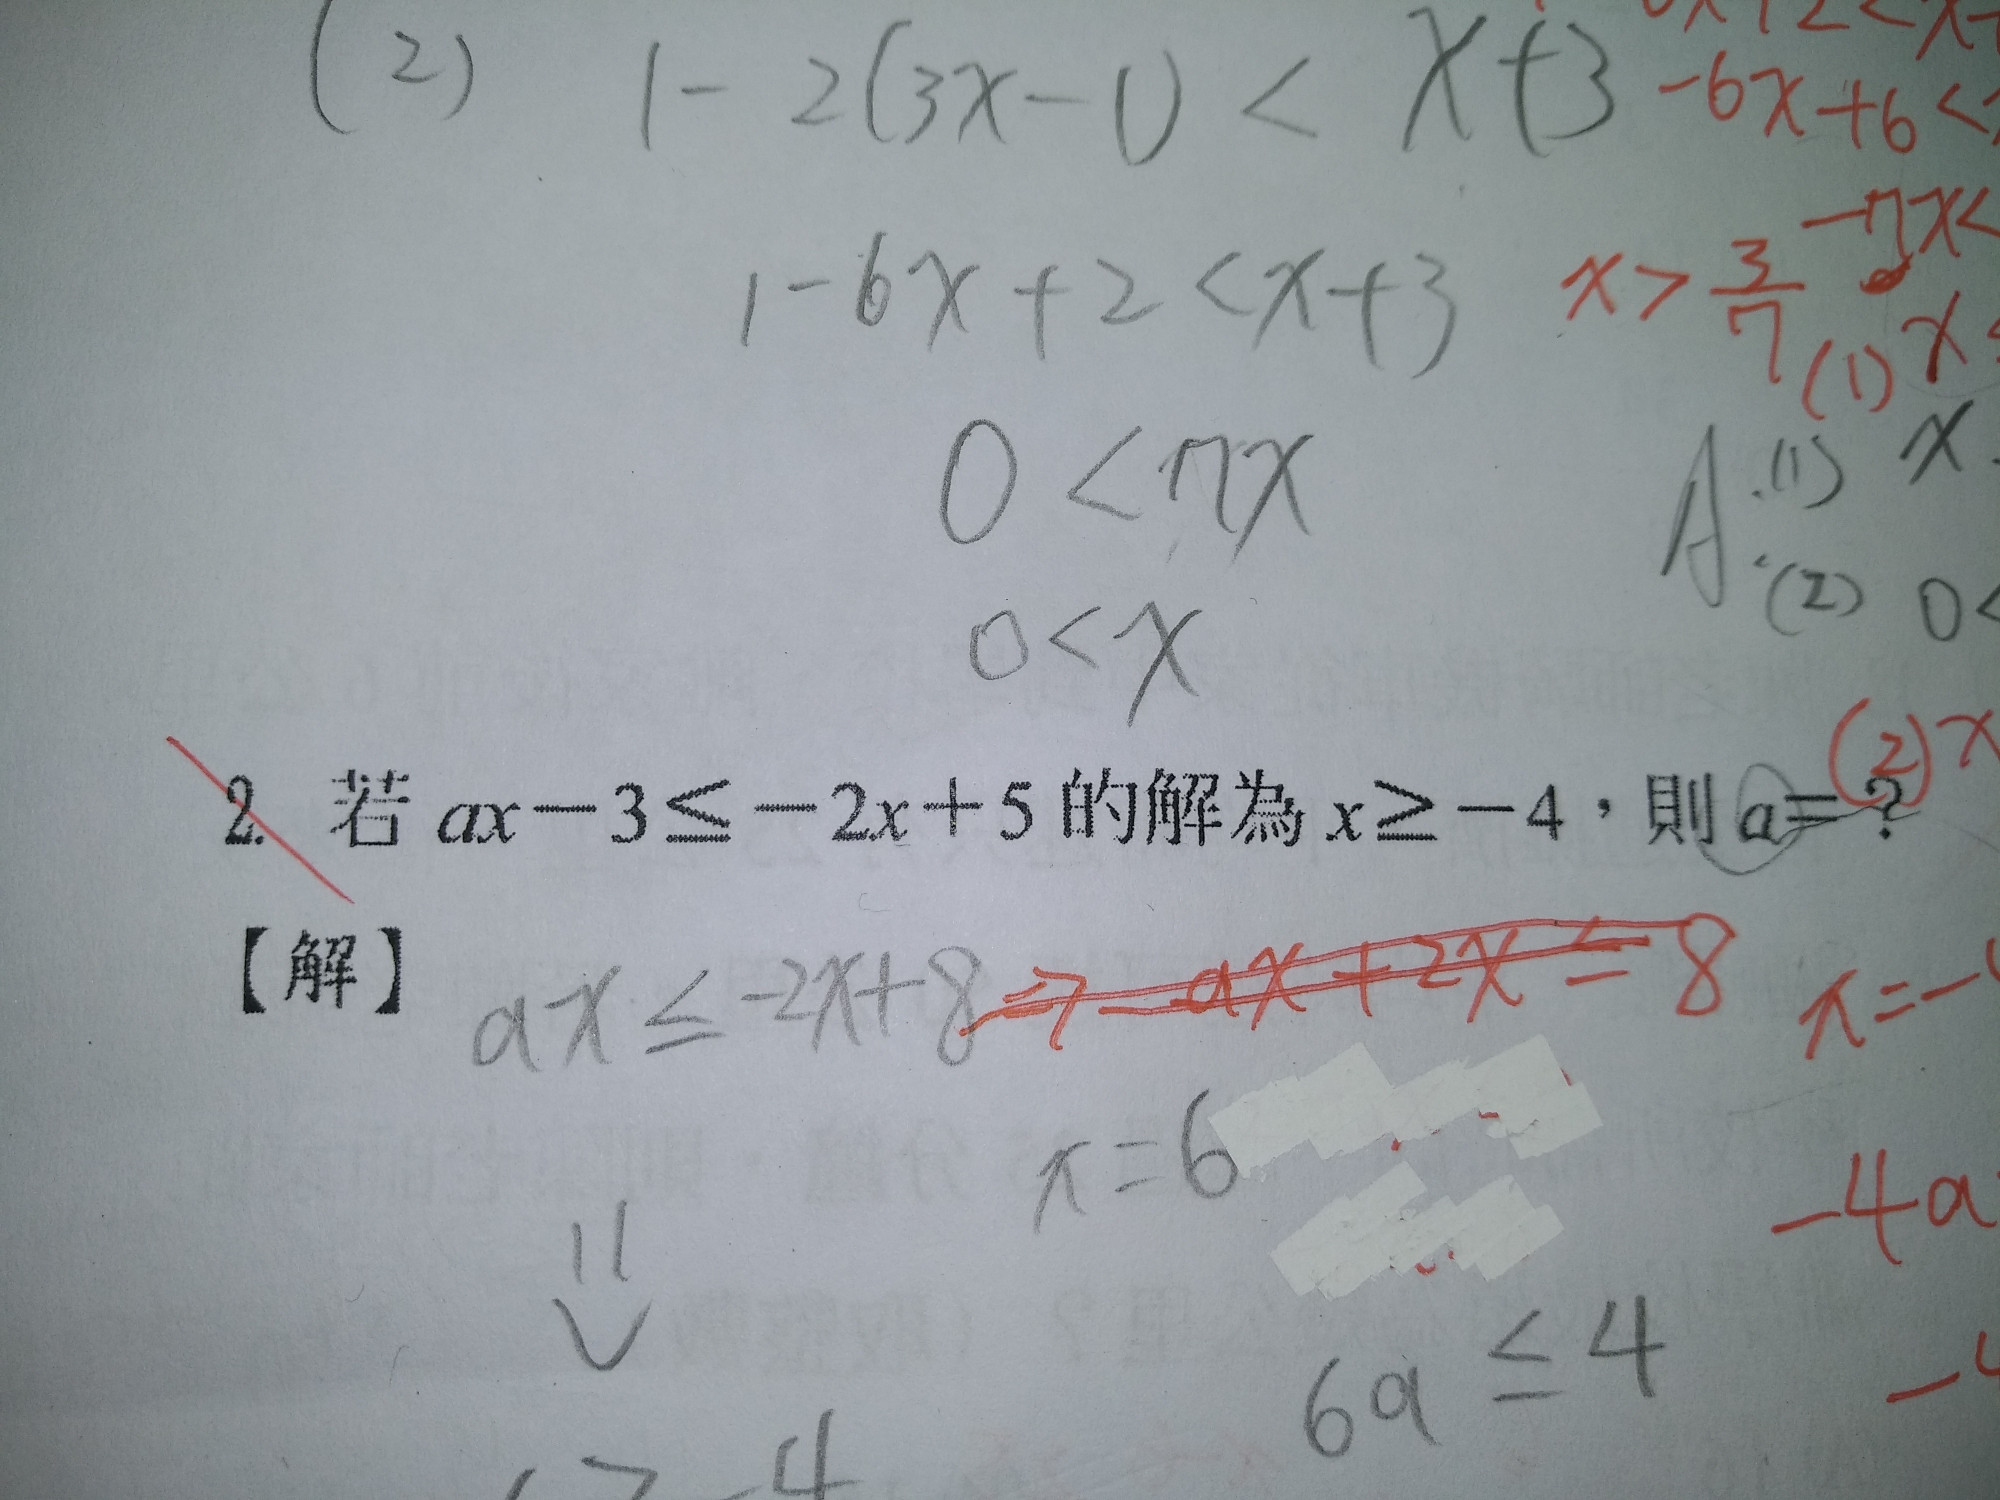 (2) 1-2(3x-1) < x+3
-6x+6<
1-6x+2<x+3
-7x<
x>3/7
(1) x
0<7x
A:(1) x
0<x
(2) 0<
(2) x
2. 若 ax-3≦-2x+5 的解為 x≧-4，則 a=?
【解】 ax≤-2x+8 => ax+2x=8
x=-4
x=6
-4a
6a≤4
-4
>-4